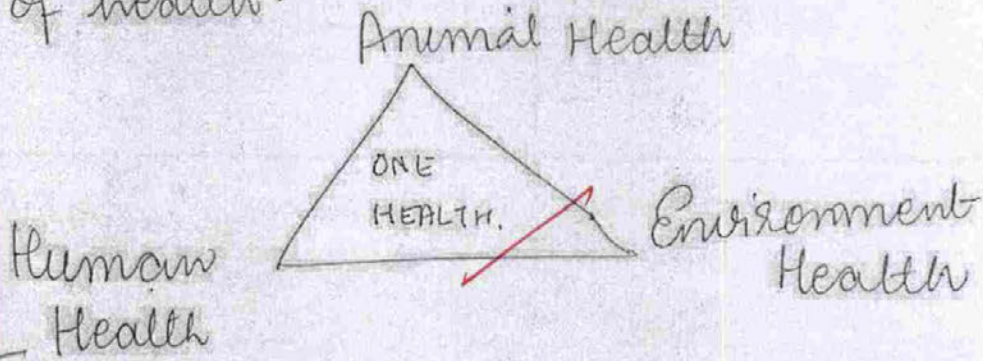 of health
Animal Health
ONE
HEALTH.
Human
Health
Environment
Health